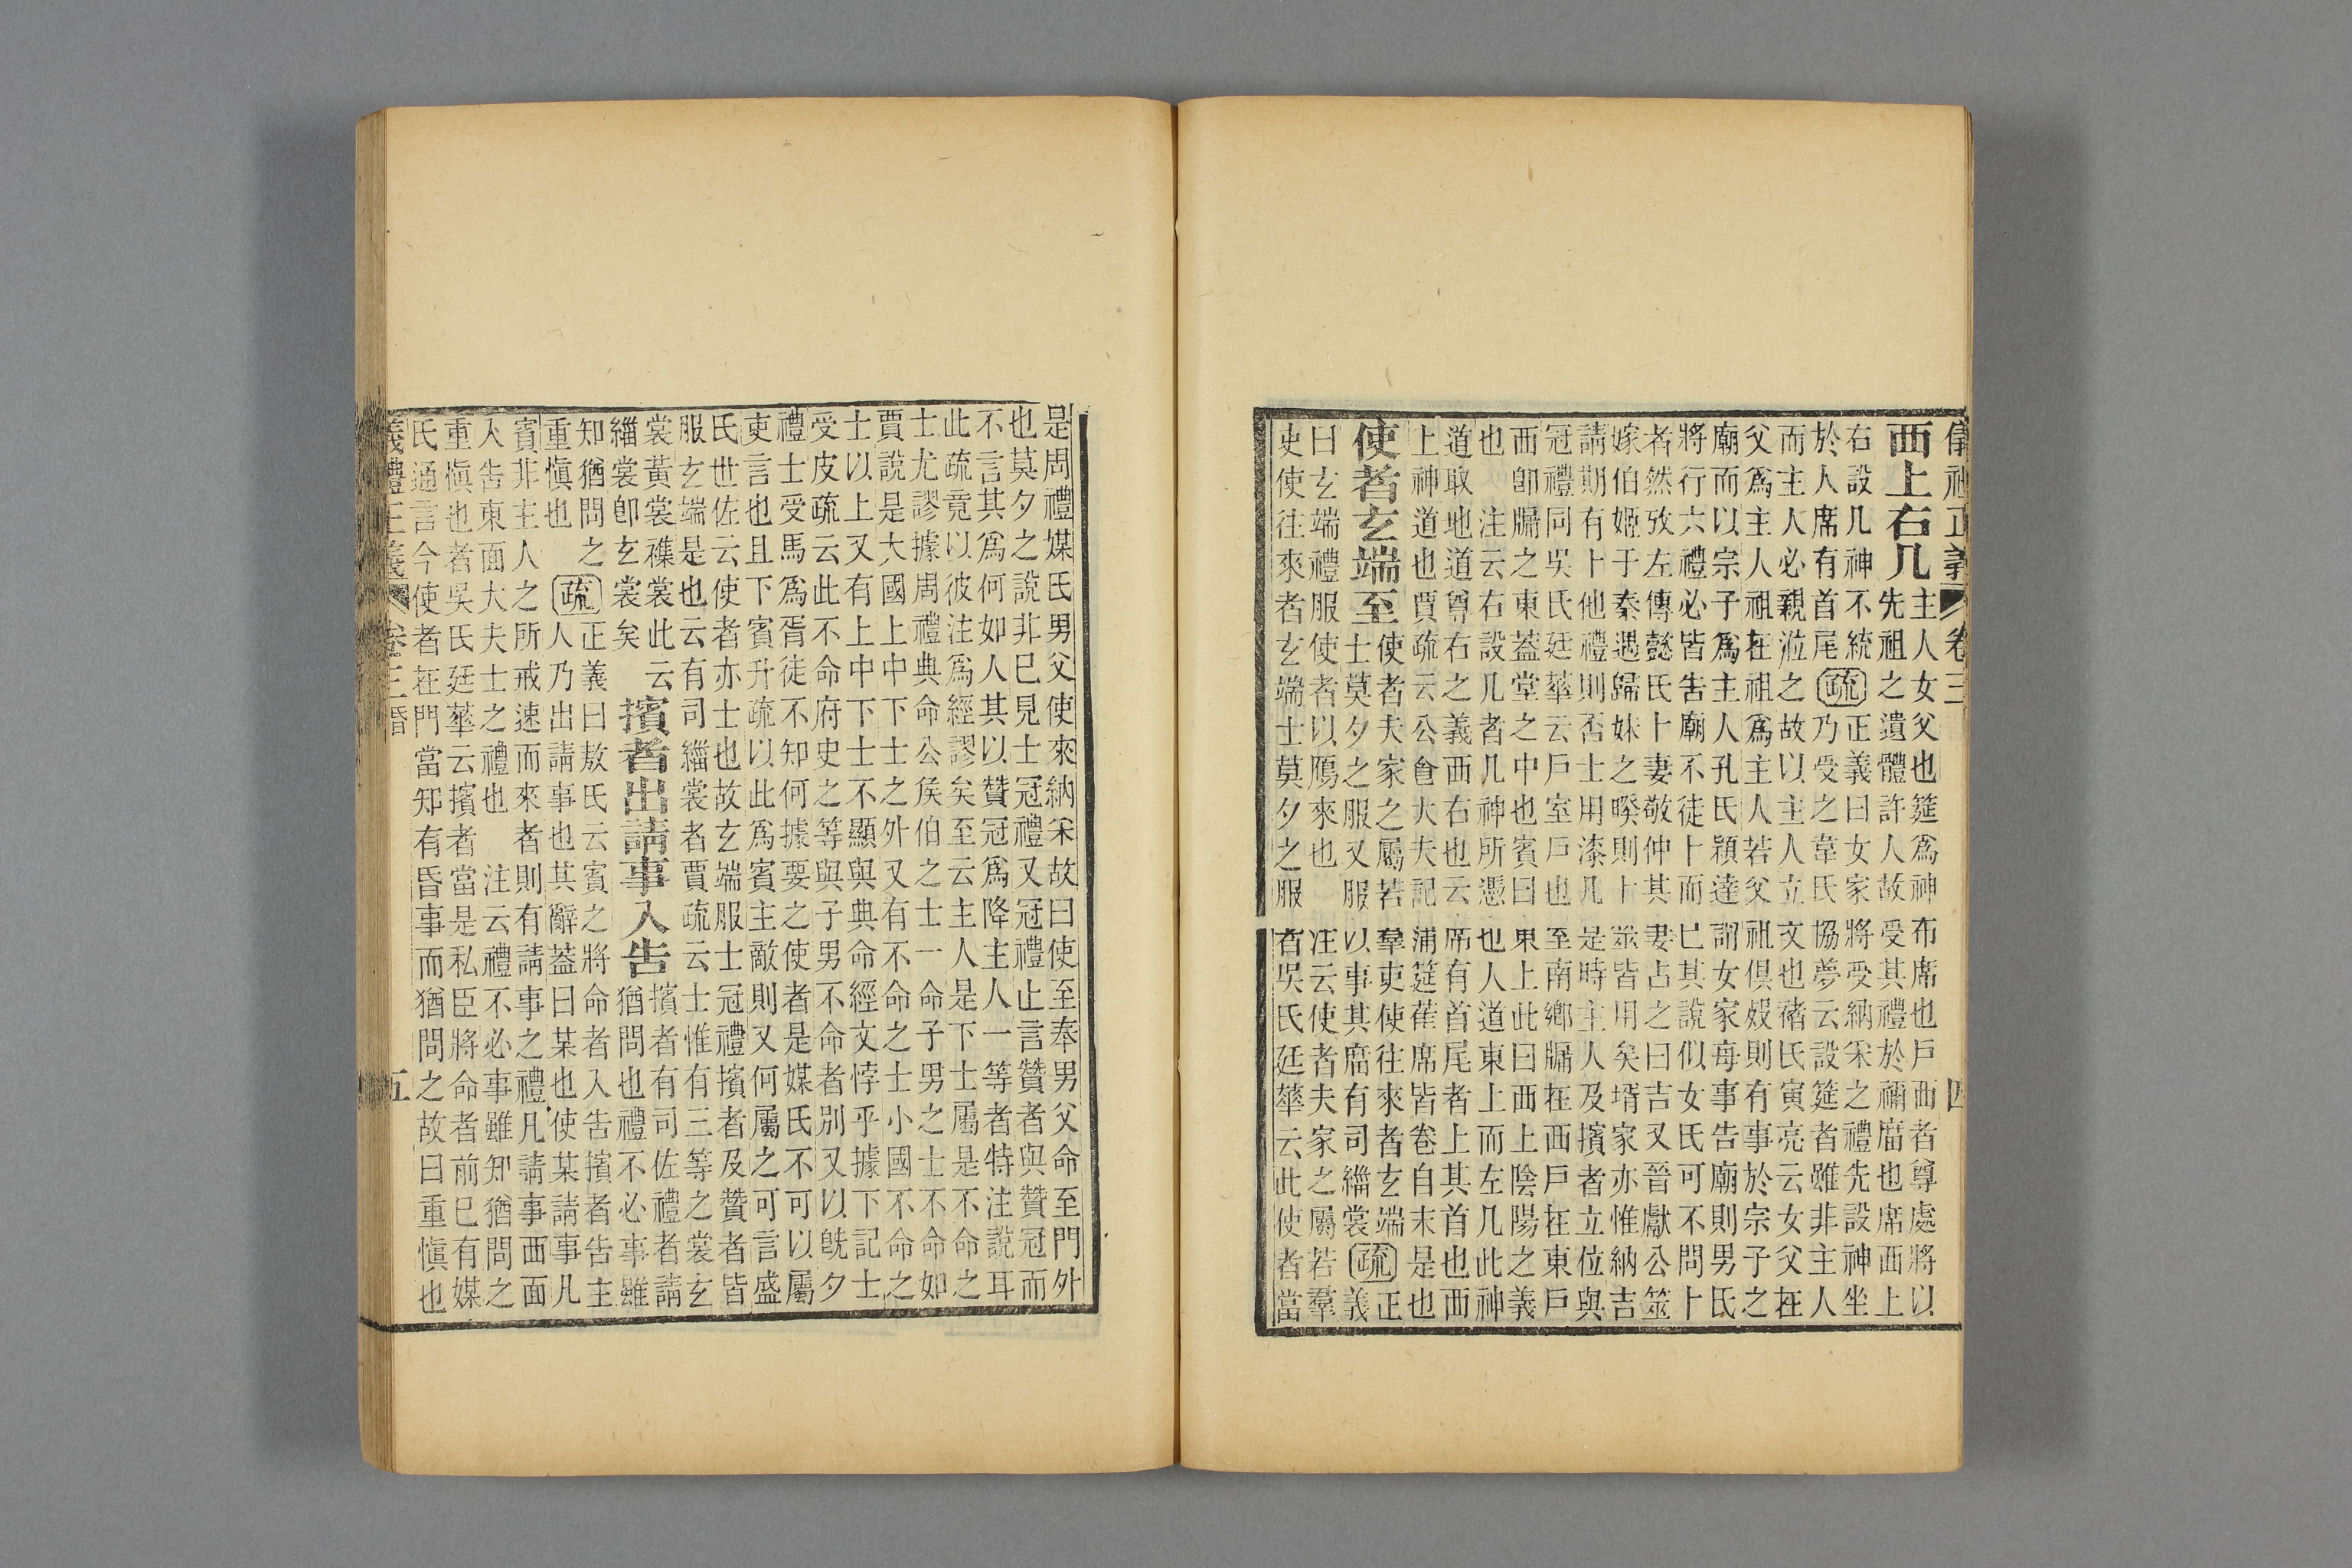 儀禮正義 卷三 四
西上右几主人女父也筵爲神布席也戶西者尊處將以
先祖之遺體許人故受其禮於禰廟也席西上
右設几神不統疏正義曰女家將受納采之禮先設神坐
於人席有首尾疏乃受之韋氏協夢云設筵者雖非主人
而主人必親涖之故以主人立文也褚氏寅亮云女父在
父爲主人祖在祖爲主人若父祖俱歿則有事於宗子之
廟而以宗子爲主人孔氏穎達謂女家每事告廟則男氏
將行六禮必皆告廟不徒卜而已其說似女氏可不問卜
者然攷左傳懿氏卜妻敬仲其妻占之曰吉又晉獻公筮
嫁伯姬于秦遇歸妹之睽則卜筮皆用矣壻家亦惟納吉
請期有卜他禮則否士用漆几是時主人及擯者立位與
冠禮同吳氏廷華云戶室戶也至南鄉牖在西戶在東戶
西卽牖之東蓋堂之中也賓曰東上此曰西上陰陽之義
也 注云右設几者几神所憑也人道東上而左几此神
道取地道尊右之義西右也云席有首尾者上其首也西
上神道也賈疏云公食大夫記蒲筵萑席皆卷自末是也
使者玄端至使者夫家之屬若羣吏使往來者玄端
士莫夕之服又服以事其廟有司緇裳疏正義
曰玄端禮服使者以鴈來也 注云使者夫家之屬若羣
吏使往來者玄端士莫夕之服者吳氏廷華云此使者當
是周禮媒氏男父使來納采故曰使至奉男父命至門外
也莫夕之說非已見士冠禮又冠禮止言贊者與贊冠而
不言其爲何如人其以贊冠爲降主人一等者特注說耳
此疏竟以彼注爲經謬矣至云主人是下士屬是不命之
士尤謬據周禮典命公侯伯之士一命子男之士不命如
賈說是大國上中下士之外又有不命之士小國不命之
士以上又有上中下士不顯與典命經文悖乎據下記士
受皮疏云此不命府史之等與子男不命者別又以旣夕
禮士受馬爲胥徒不知何據要之使者是媒氏不可以屬
吏言也且下賓升疏以此爲賓主敵則又何屬之可言盛
氏世佐云使者亦士也故玄端服士冠禮擯者及贊者皆
服玄端是也云有司緇裳者賈疏云士惟有三等之裳玄
裳黃裳襍裳此云擯者有司佐禮者請
緇裳卽玄裳矣 擯者出請事入告猶問也禮不必事雖
知猶問之疏正義曰敖氏云賓之將命者入告擯者告主
重慎也 人乃出請事也其辭蓋曰某也使某請事凡
賓非主人之所戒速而來者則有請事之禮凡請事西面
入告東面大夫士之禮也 注云禮不必事雖知猶問之
重慎也者吳氏廷華云擯者當是私臣將命者前已有媒
氏通言今使者在門當知有昏事而猶問之故曰重慎也
義禮正義 卷三昏 五